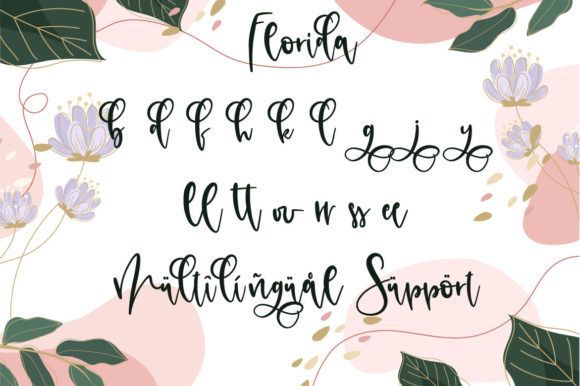 Florida
b d f h k l g j y
ll tt rr ss ee
Mültîlíñgüål Süppört